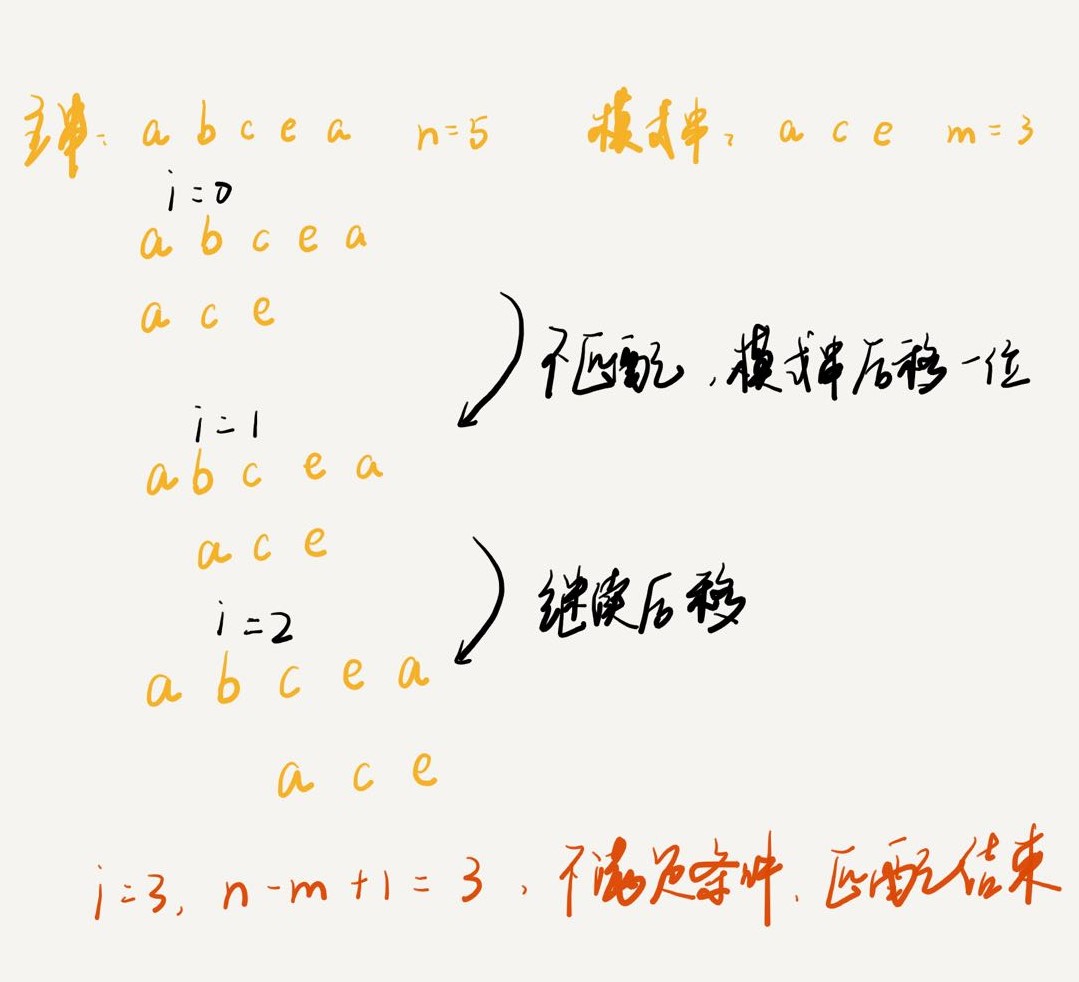 主串: a b c e a n=5 模式串: a c e m=3
i=0
a b c e a
a c e
不匹配,模式串后移一位
i=1
a b c e a
a c e
继续后移
i=2
a b c e a
a c e
i=3, n-m+1=3, 不满足条件, 匹配结束